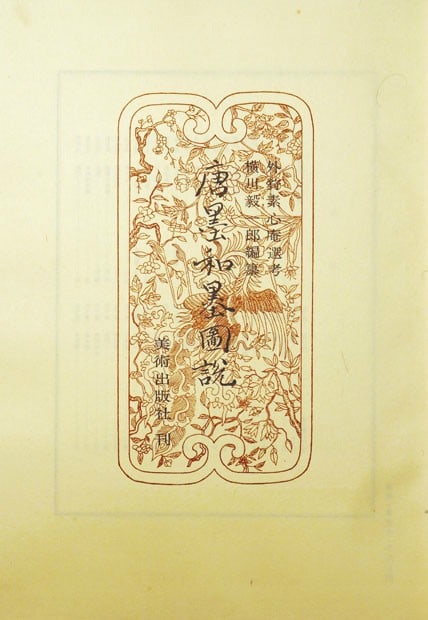 外狩素心庵選考
横川毅一郎編纂
唐墨和墨圖説
美術出版社刊